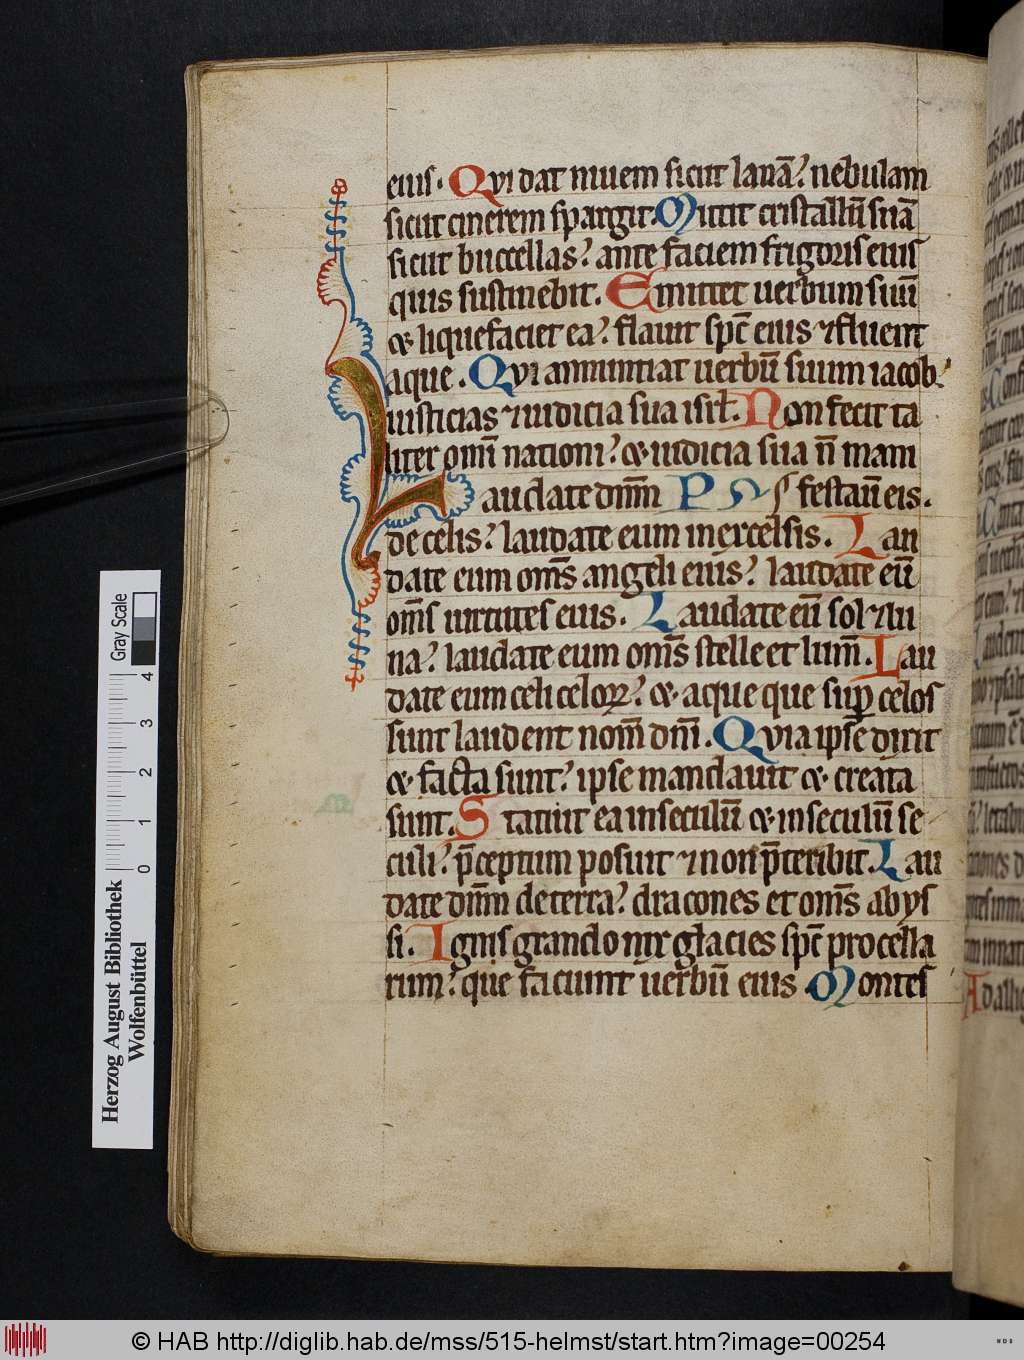 eius. Qvi dat niuem sicut lanā? nebulam
sicut cinerem spargit. Mittit cristallū suā
sicut buccellas? ante faciem frigoris eius
quis sustinebit. Emittet uerbum suū
⁊ liquefaciet ea? flauit sp̄c eius ⁊ fluent
aque. Qvi annuntiat uerbū suum iacob
iusticias ⁊ iudicia sua isrl̄. Non fecit ta
liter omī nationi? ⁊ iudicia sua n̄ mani
festau̅ eis.
Laudate dnm̄
de celis? laudate eum in excelsis. Lau
date eum om̄s angeli eius? laudate eū
om̄s uirtutes eius. Laudate eū sol ⁊ lu
na? laudate eum om̄s stelle et lum̄. Lau
date eum celi celoꝝ? ⁊ aque que suꝑ celos
sunt laudent nom̄ dn̄i. Qvia ipse dixit
⁊ facta sunt? ipse mandauit ⁊ creata
sunt. Statuit ea in seculū ⁊ in seculū se
culi? p̄ceptum posuit ⁊ non p̄teribit. Lau
date dnm̄ de terra? dracones et om̄s abys
si. Ignis grando nix glacies sp̄c procella
rum? que faciunt uerbū eius Montes
Herzog August Bibliothek
Wolfenbüttel
0 1 2 3 4
Gray Scale
© HAB http://diglib.hab.de/mss/515-helmst/start.htm?image=00254